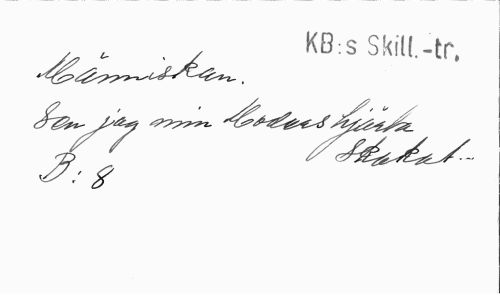 KB:s Skill.-tr.
Människan.
Sen jag min Moders hjärta
Skakat...
B: 8